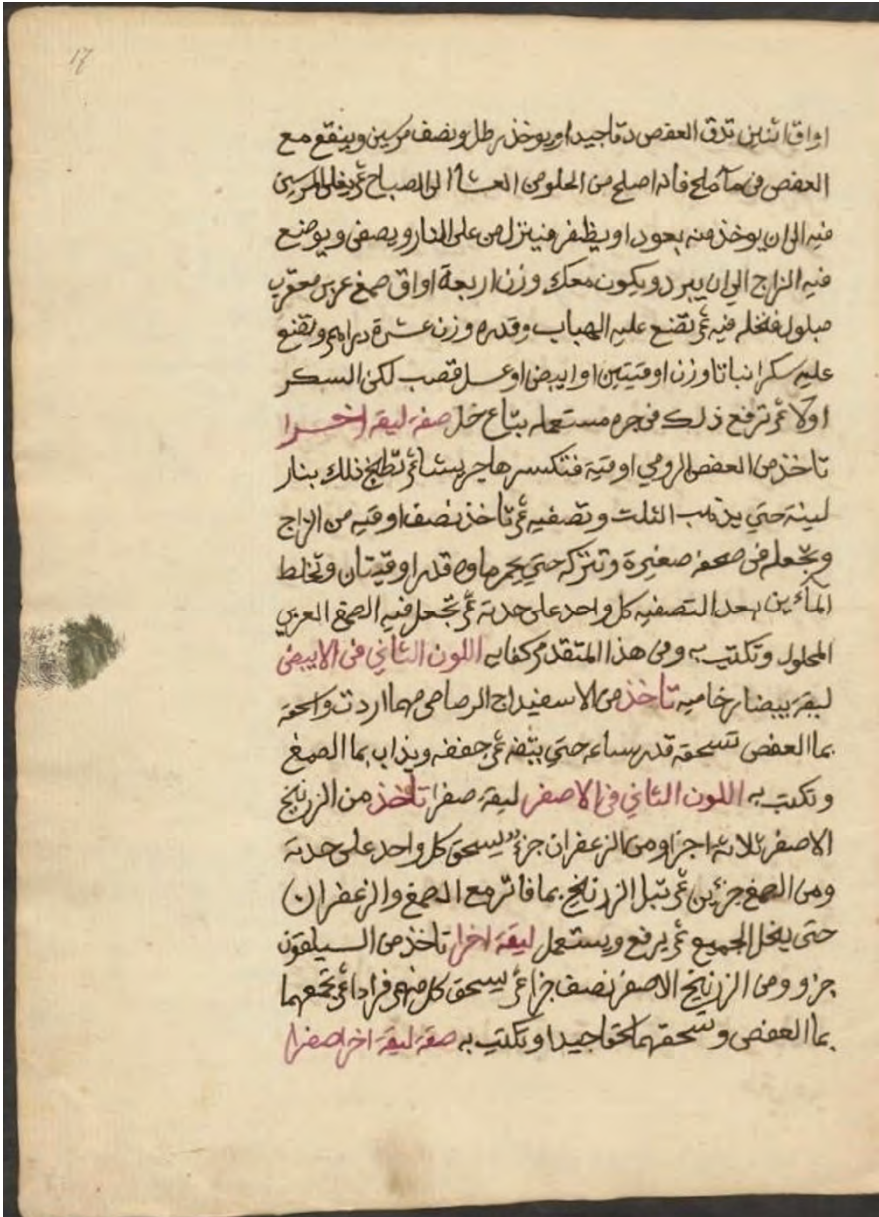 17
اواق اثنين تدق العفص دقا جيدا ويوخذ رطل ونصف مرسين وينقع مع
العفص فى مآ ملح فانه اصلح من الحلو من العشآ الى الصباح ثم يغلى المرسين
فيه الى ان يوخذ منه بعود او بظفر فينزل من على النار ويصفى ويوضع
فيه الزاج الي ان يبرد ويكون معك وزن اربعة اواق صمغ عربى معقرب
مبلول فنحله فيه ثم تضع عليه الهباب وقدره وزن عشرة دراهم وتضع
عليه سكرا نباتا وزن اوقيتين او ابيض او عسل قصب لكن السكر
اولا ثم ترفع ذلك فى جره مستعمله بتاع خل صفة ليقة اخرا
تاخذ من العفص الرومي اوقية فتكسرها جريشا ثم تطبخ ذلك بنار
لينة حتي يذهب الثلت وتصفيه ثم تاخذ نصف اوقيه من الزاج
وتجعله فى صحفه صغيرة وتتركه حتي يحمر ماوه قدر اوقيتان وتخلط
المآئين بعد التصفيه كل واحد على حدته ثم تجعل فيه الصمغ العربي
المحلول وتكتب به وفى هذا المتقدم كفايه اللون الثاني فى الابيض
ليقة بيضا رخاميه تاخذ من الاسفيداج الرصاصى مهما اردت واسحقه
بما العفص تسحقه قدر ساعه حتي ثم جففه ويذاب بما الصمغ
وتكتب به اللون الثاني فى الاصفر ليقة صفرا تاخذ من الزرنيخ
الاصفر ثلاثة اجزا ومن الزعفران جزء يسحق كل واحد على حدته
ومن الصمغ جزءين ثم تبل الزرنيخ بما فاتر مع الصمغ والزعفران
حتى ينحل الجميع ثم يرفع ويستعمل ليقة اخرا تاخذ من السيلقون
جزو ومن الزرنيخ الاصفر نصف جزا ثم يسحق كل منهم فرادا ثم تجمعهما
بما العفص وتسحقهما سحقا جيدا وتكتب به صفة ليقة اخرا صفرا